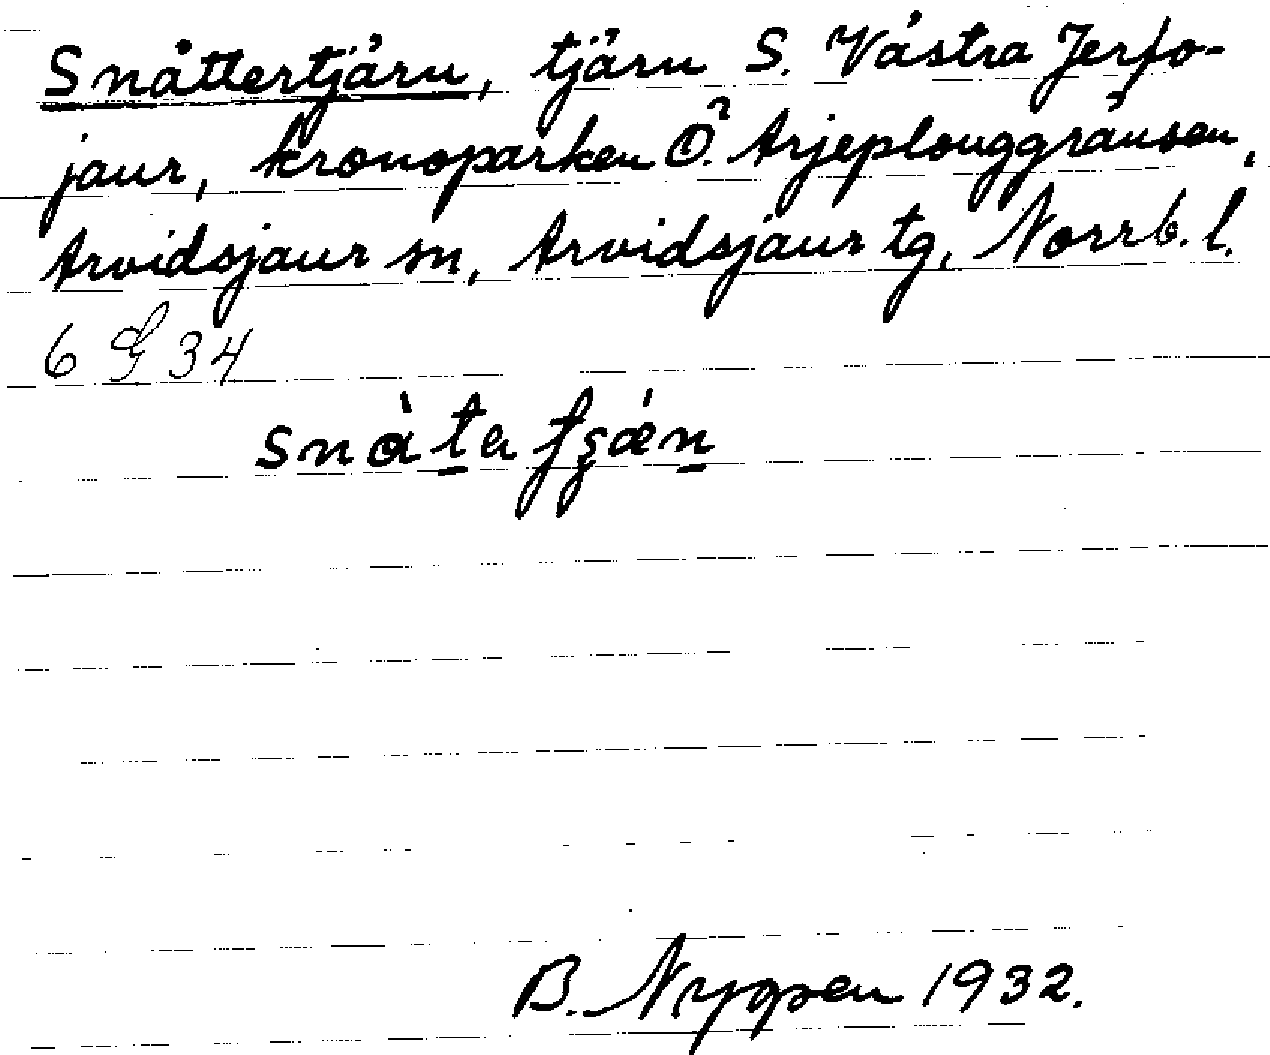 Snåttertjärn, tjärn S. Västra Jerfo-
jaur, kronoparken Ö. Arjeplouggränsen,
Arvidsjaur sn, Arvidsjaur tg, Norrb. l.
6 G 34
B. Nygren 1932.